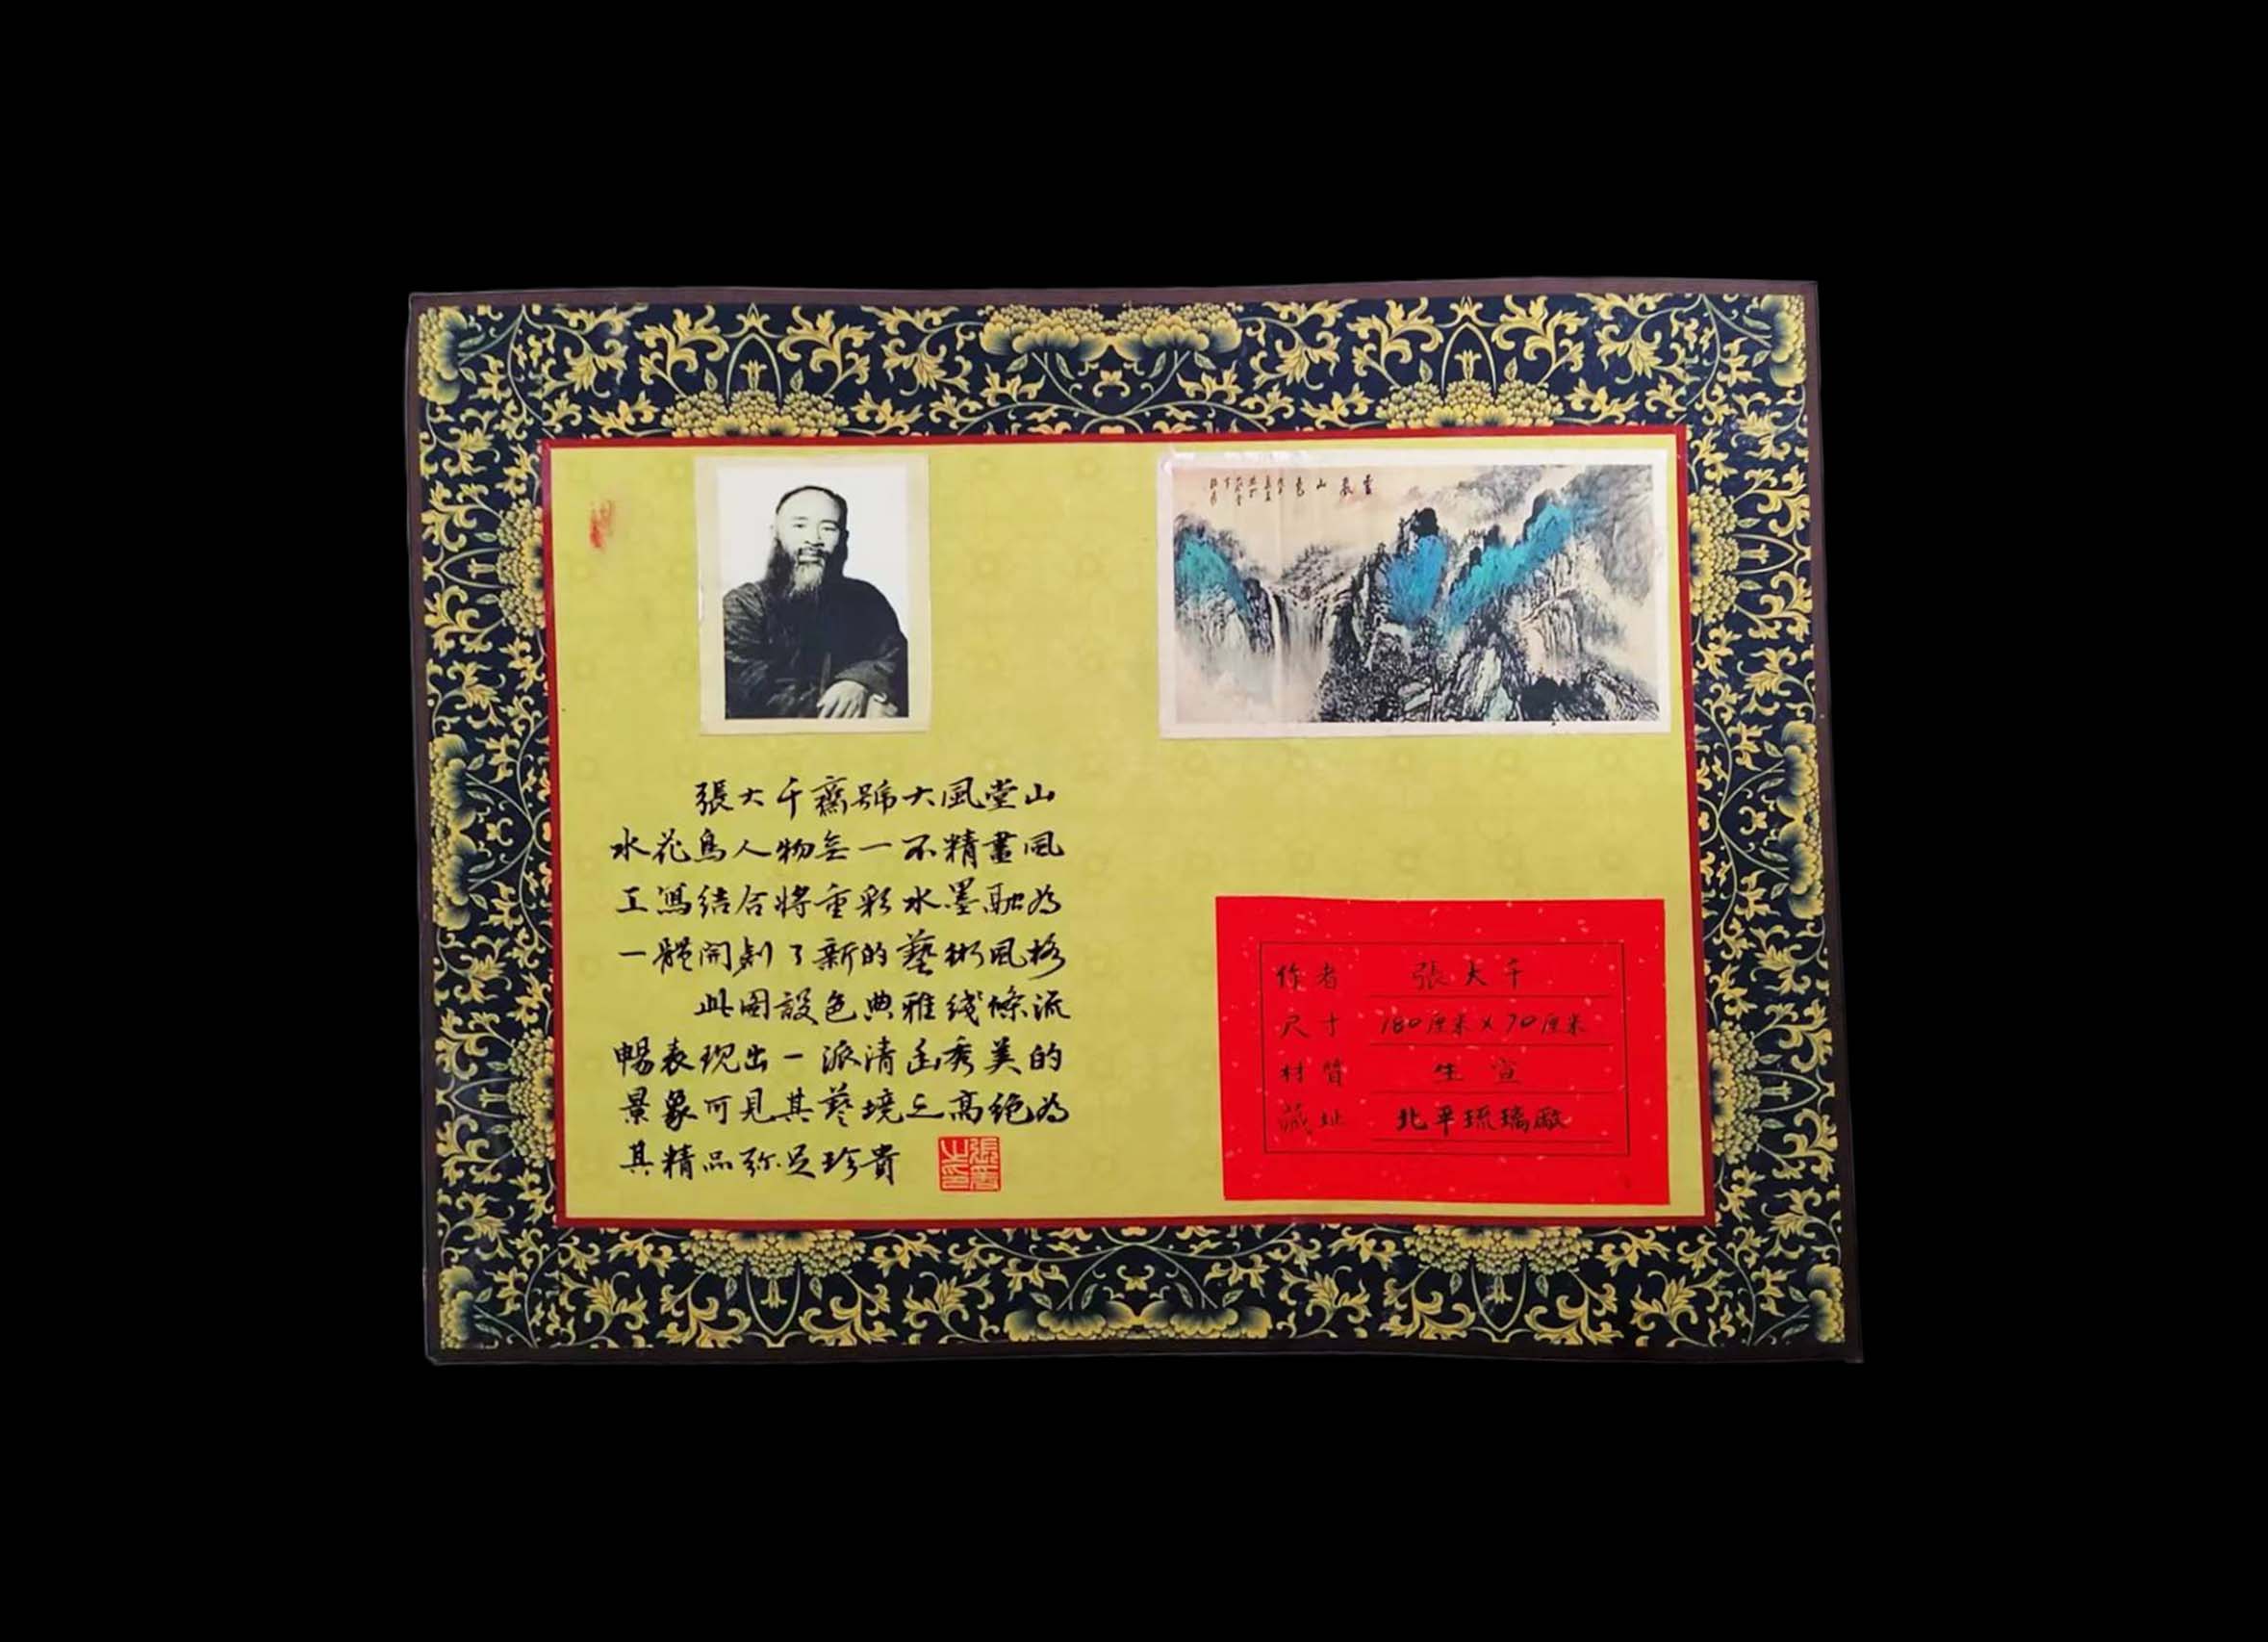 張大千齋號大風堂山
水花鳥人物無一不精畫風
工寫結合將重彩水墨融為
一體開創了新的藝術風格
此圖設色典雅綫條流
暢表現出一派清幽秀美的
景象可見其藝境之高絶為
其精品弥足珍貴
作者 張大千
尺寸 180厘米X70厘米
材質 生宣
藏址 北平琉璃廠